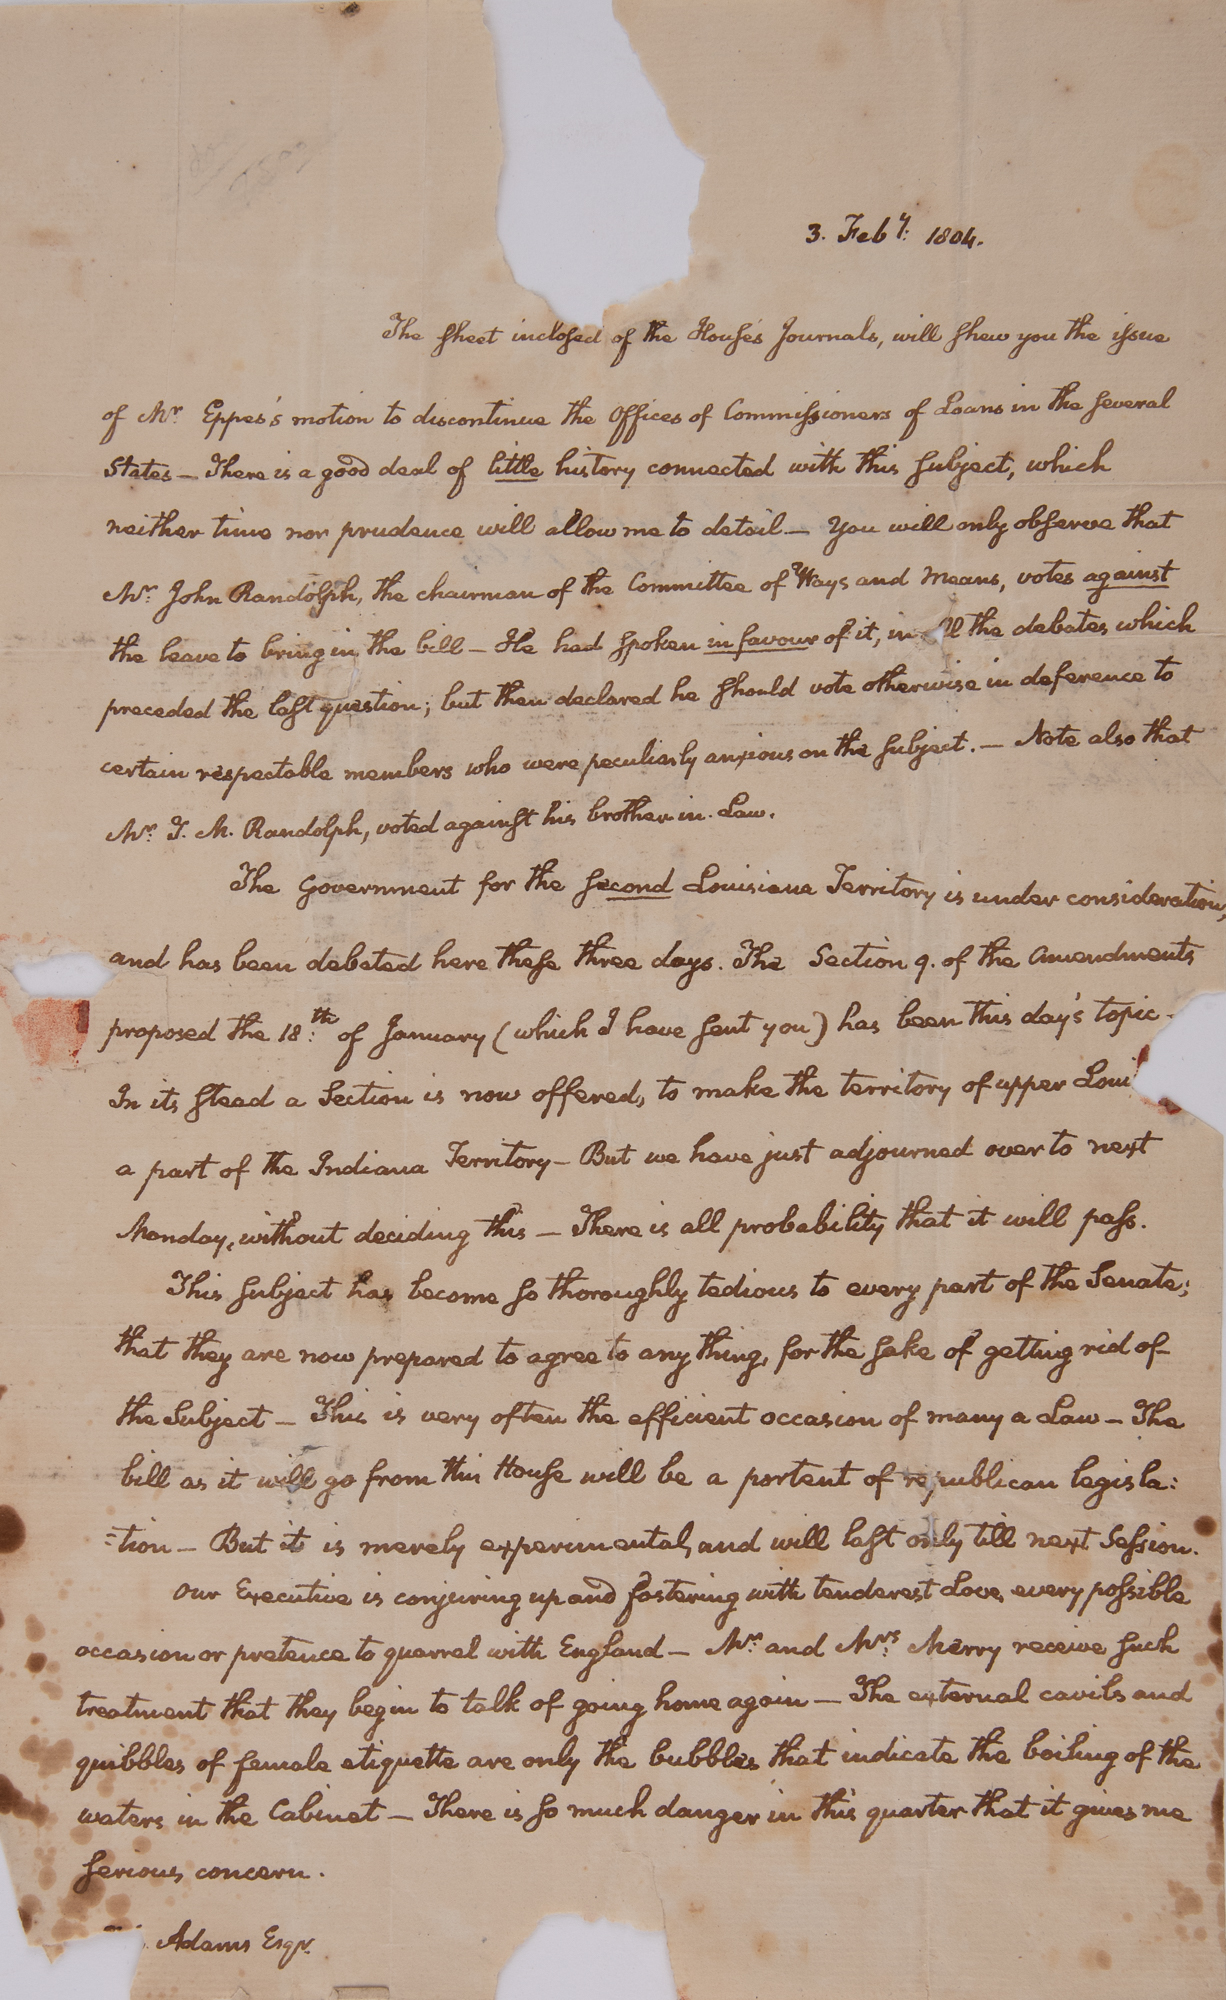 3. Feby: 1804.
The sheet inclosed of the House's Journals, will shew you the issue
of Mr Eppes's motion to discontinue the Offices of Commissioners of Loans in the several
States — There is a good deal of little history connected with this subject, which
neither time nor prudence will allow me to detail — You will only observe that
Mr: John Randolph, the chairman of the Committee of Ways and Means, votes against
the leave to bring in the bill — He had spoken in favour of it, in all the debates which
preceded the last question; but then declared he should vote otherwise in deference to
certain respectable members who were peculiarly anxious on the subject. — Note also that
Mr: T. M. Randolph, voted against his brother in. Law.
The Government for the second Louisiana Territory is under consideration,
and has been debated here these three days. The Section 9. of the amendments
proposed the 18:th of January (which I have sent you) has been this day's topic —
In its stead a Section is now offered, to make the territory of upper Loui
a part of the Indiana Territory — But we have just adjourned over to next
Monday, without deciding this — There is all probability that it will pass.
This subject has become so thoroughly tedious to every part of the Senate;
that they are now prepared to agree to any thing, for the sake of getting rid of
the Subject — This is very often the efficient occasion of many a Law — The
bill as it will go from this House will be a portent of republican legisla:
:tion — But it is merely experimental, and will last only till next Session.
Our Executive is conjuring up and fostering with tenderest Love, every possible
occasion or pretence to quarrel with England — Mr: and Mrs: Merry receive such
treatment that they begin to talk of going home again — The external cavils and
quibbles of female etiquette are only the bubbles that indicate the boiling of the
waters in the Cabinet — There is so much danger in this quarter that it gives me
serious concern.
Adams Esqr.